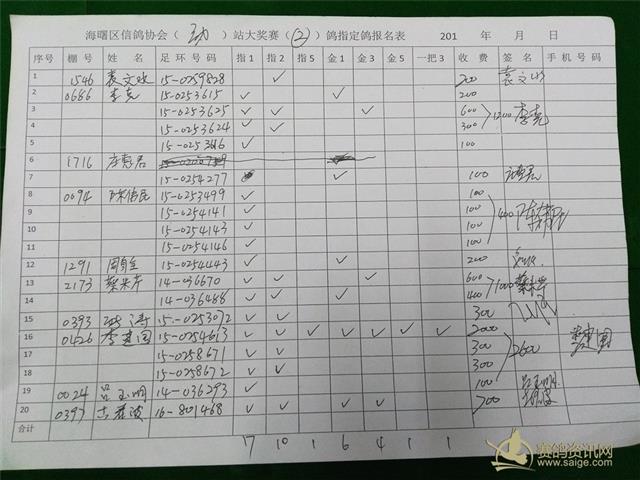 海曙区信鸽协会（ ）站大奖赛（②）鸽指定鸽报名表 201 年 月 日
序号 棚号 姓名 足环号码 指1 指2 指5 金1 金3 金5 一把3 收费 签名 手机号码
1 1546 袁文 15-0259828 ✓ 200 袁文
2 0686 李克 15-0253615 ✓ ✓ 200
3 15-0253625 ✓ ✓ ✓ 600 1200 李克
4 15-0253624 ✓ ✓ 300
5 15-0253616 ✓ 100
6 1716
7 15-0254277 ✓ 100
8 0094 陈伯民 15-0253499 ✓ 100
9 15-0254141 ✓ 100 400
10 15-0254143 ✓ 100
11 15-0254146 ✓ 100
12 1291 15-0254443 ✓ ✓ 200
13 2173 14-036670 ✓ ✓ ✓ 600 1000
14 14-036488 ✓ ✓ ✓ 400
15 0393 涛 15-0253072 ✓ ✓ 300
16 0426 李建国 15-0254613 ✓ ✓ ✓ ✓ ✓ ✓ ✓ 2000
17 15-0258671 ✓ ✓ 300 2600
18 15-0258672 ✓ ✓ 300
19 0024 吕玉明 14-036293 ✓ 100 吕玉明
20 0397 16-801468 ✓ ✓ ✓ ✓ 700
合计 17 10 1 6 4 1 1
赛鸽资讯网
www.saige.com